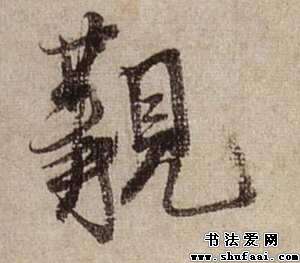 覯
书法爱网
www.shufaai.com